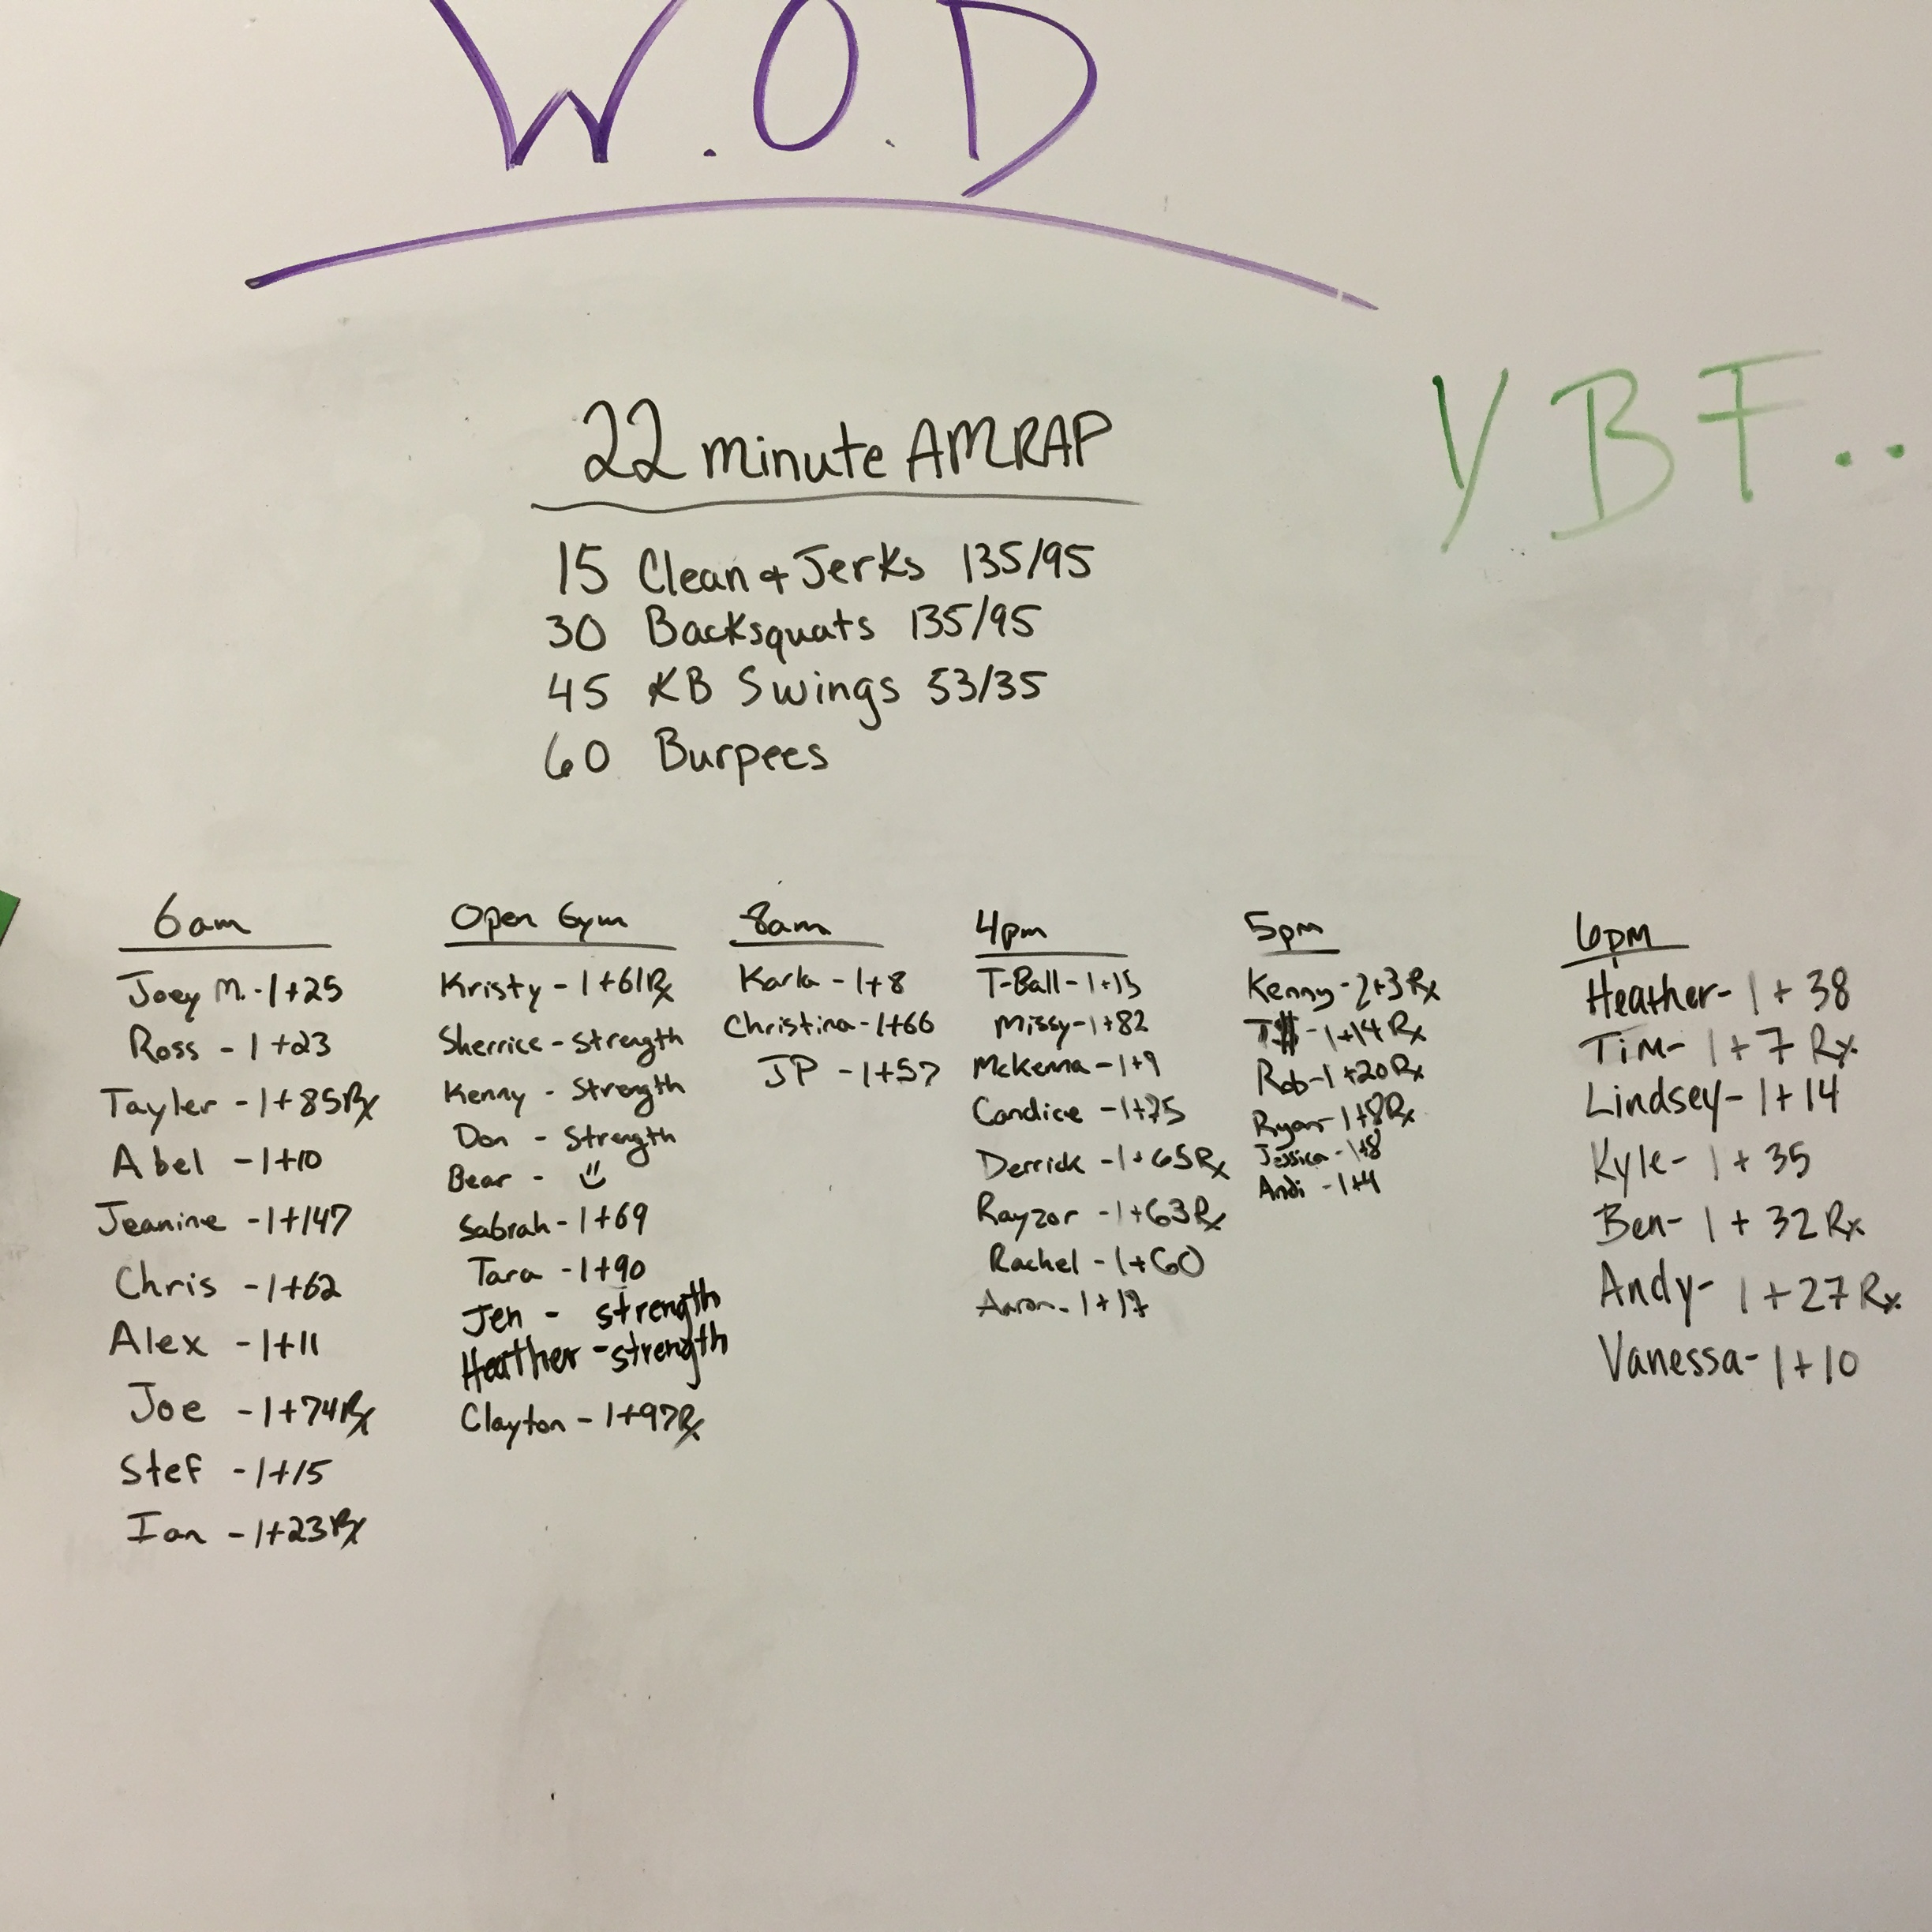 W.O.D
YBF..
22 minute AMRAP
15 Clean & Jerks 135/95
30 Backsquats 135/95
45 KB Swings 53/35
60 Burpees
6am
Joey M. - 1+25
Ross - 1+23
Tayler - 1+85Rx
Abel - 1+10
Jeanine - 1+147
Chris - 1+62
Alex - 1+11
Joe - 1+74Rx
Stef - 1+15
Ian - 1+23Rx
Open Gym
Kristy - 1+61Rx
Sherrice - strength
Kenny - Strength
Don - Strength
Bear -
Sabrah - 1+69
Tara - 1+90
Jen - strength
Heather - strength
Clayton - 1+97Rx
8am
Karla - 1+8
Christina - 1+66
JP - 1+57
4pm
T-Ball - 1+15
Missy - 1+82
McKenna - 1+9
Candice - 1+75
Derrick - 1+65Rx
Rayzor - 1+63Rx
Rachel - 1+60
Aaron - 1+17
5pm
Kenny - 2+3Rx
T$ - 1+14Rx
Rob - 1+20Rx
Ryan - 1+8Rx
Jessica - 1+8
Andi - 1+4
6pm
Heather - 1+38
Tim - 1+7 Rx
Lindsey - 1+14
Kyle - 1+35
Ben - 1+32 Rx
Andy - 1+27 Rx
Vanessa - 1+10